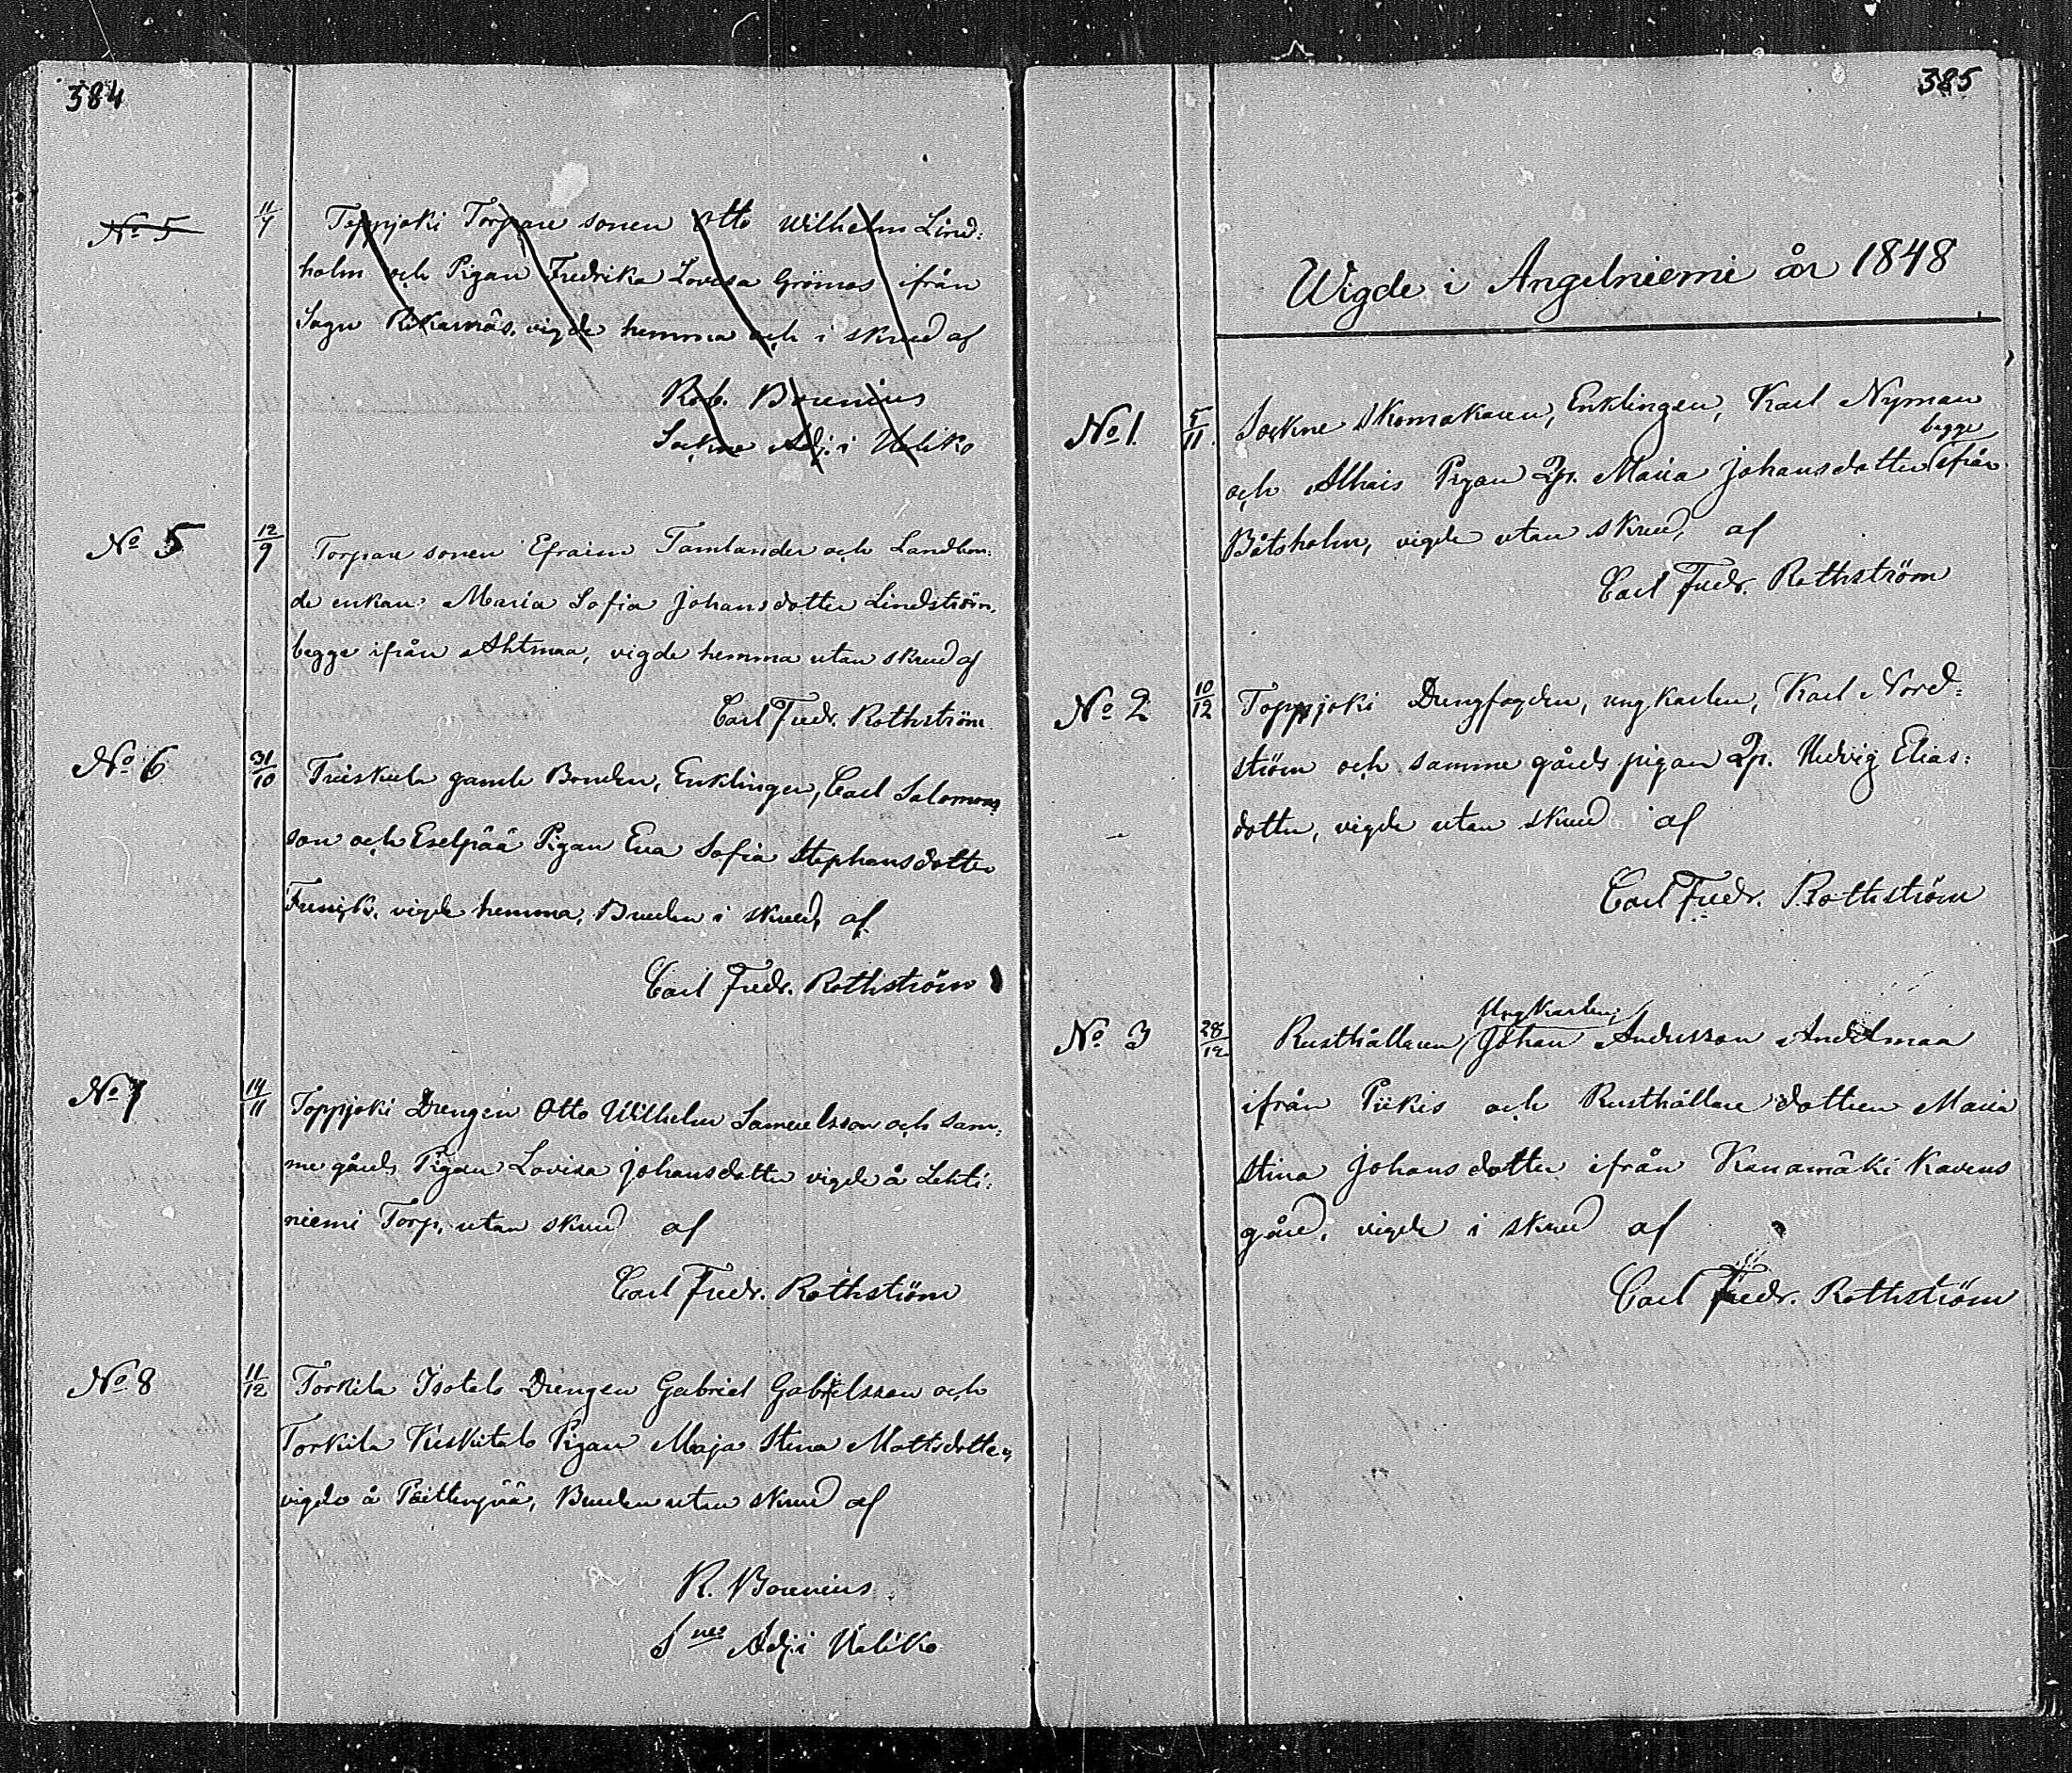 384
No 5 11/7 Toppjoki Torpare sonen Otto Wilhelm Lind:
holm och Pigan Fredrika Lovisa Grömos ifrån
Sagu Rikarnäs, vigde hemma och i skrud af
Rob. Bounius
Sockne Adj. i Uskiko
No 5 12/9 Torpare sonen Efraim Tamlander och Landbon:
de enkan Maria Sofia Johansdotter Lindström,
begge ifrån Ahtmaa, vigde hemma utan skrud af
Carl Fredr. Rothström
No 6 31/10 Friskula gamle Bonden, Enklingen, Carl Salomons
son och Eselpää Pigan Eva Sofia Stephansdotter
vigde hemma, Bruden i skrud, af
Carl Fredr. Rothström
No 7 14/11 Toppjoki Drengen Otto Wilhelm Samuelsson och sam:
me gårds Pigan Lovisa Johansdotter vigde å Lehti:
niemi Torp, utan skrud af
Carl Fredr. Rothström
No 8 11/12 Torkila Isotalo Drengen Gabriel Gabrielsson och
Torkila Keskitalo Pigan Maja Stina Mattsdotter,
vigde å Päittenpää, Bruden utan skrud af
R. Bounius
Sne Adj. i Uskiko
385
Wigde i Angelniemi år 1848
No 1. 5/11. Sockne Skomakaren, Enklingen, Karl Nyman
begge
och Alhais Pigan Qp. Maria Johansdotter ifrån
Båtsholm, vigde utan skrud, af
Carl Fredr. Rothström
No 2 10/12 Toppjoki Drengfogden, ungkarlen, Karl Nord:
ström och samme gårds pigan Qp. Hedvig Elias:
dotter, vigde utan skrud af
Carl Fredr. Rothström
Ungkarlen,
No 3 28/12 Rusthållaren, Johan Andersson Andelmaa
ifrån Piikis och Rusthållare dottren Maria
Stina Johansdotter ifrån Kanamäki Kavens
gård, vigde i skrud af
Carl Fredr. Rothström